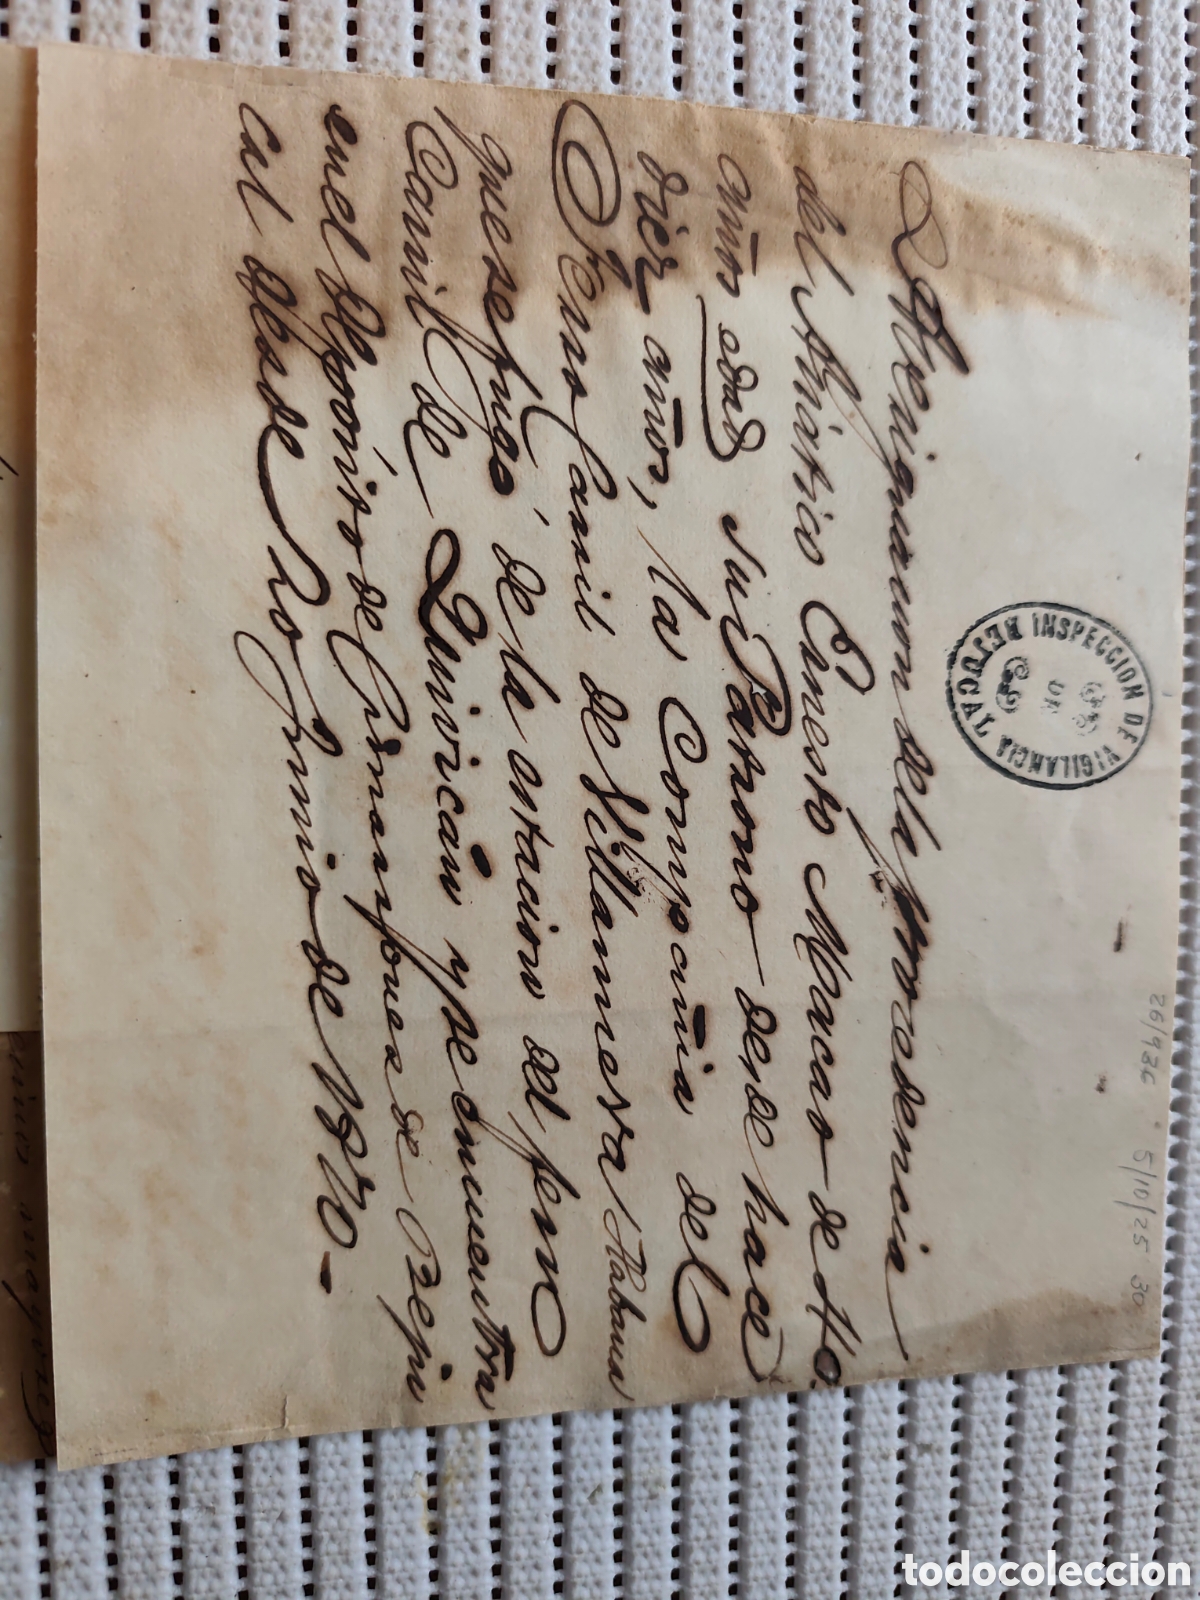 INSPECCION DE VIGILANCIA
DE
BEJUCAL
26/926 5/10/25 30
Averiguacion dela procedencia
del Asiático Ernesto Macao de 40.
años edad su Patrono desde hace
diez años, la Compañia del
Ferro Carril de Villanueva Habana
que se fugó de la estacion del ferro
Carril de Quivicán y se encuentra
en el Depósito de Cimarrones de Beju
cal desde 20 Junio de 1870-
todocoleccion